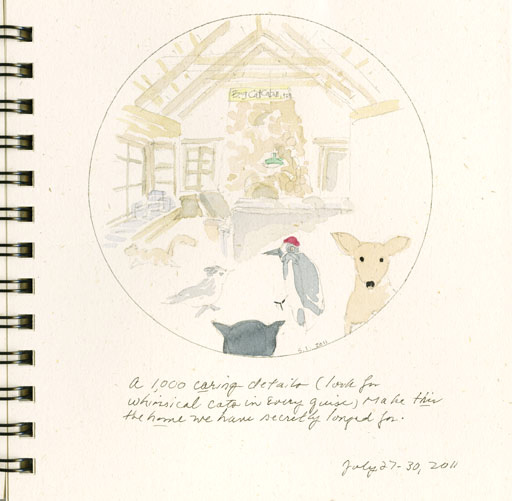 S.L. 2011
A 1,000 caring details (look for
whimsical cats in every guise) make this
the home we have secretly longed for.
July 27-30, 2011